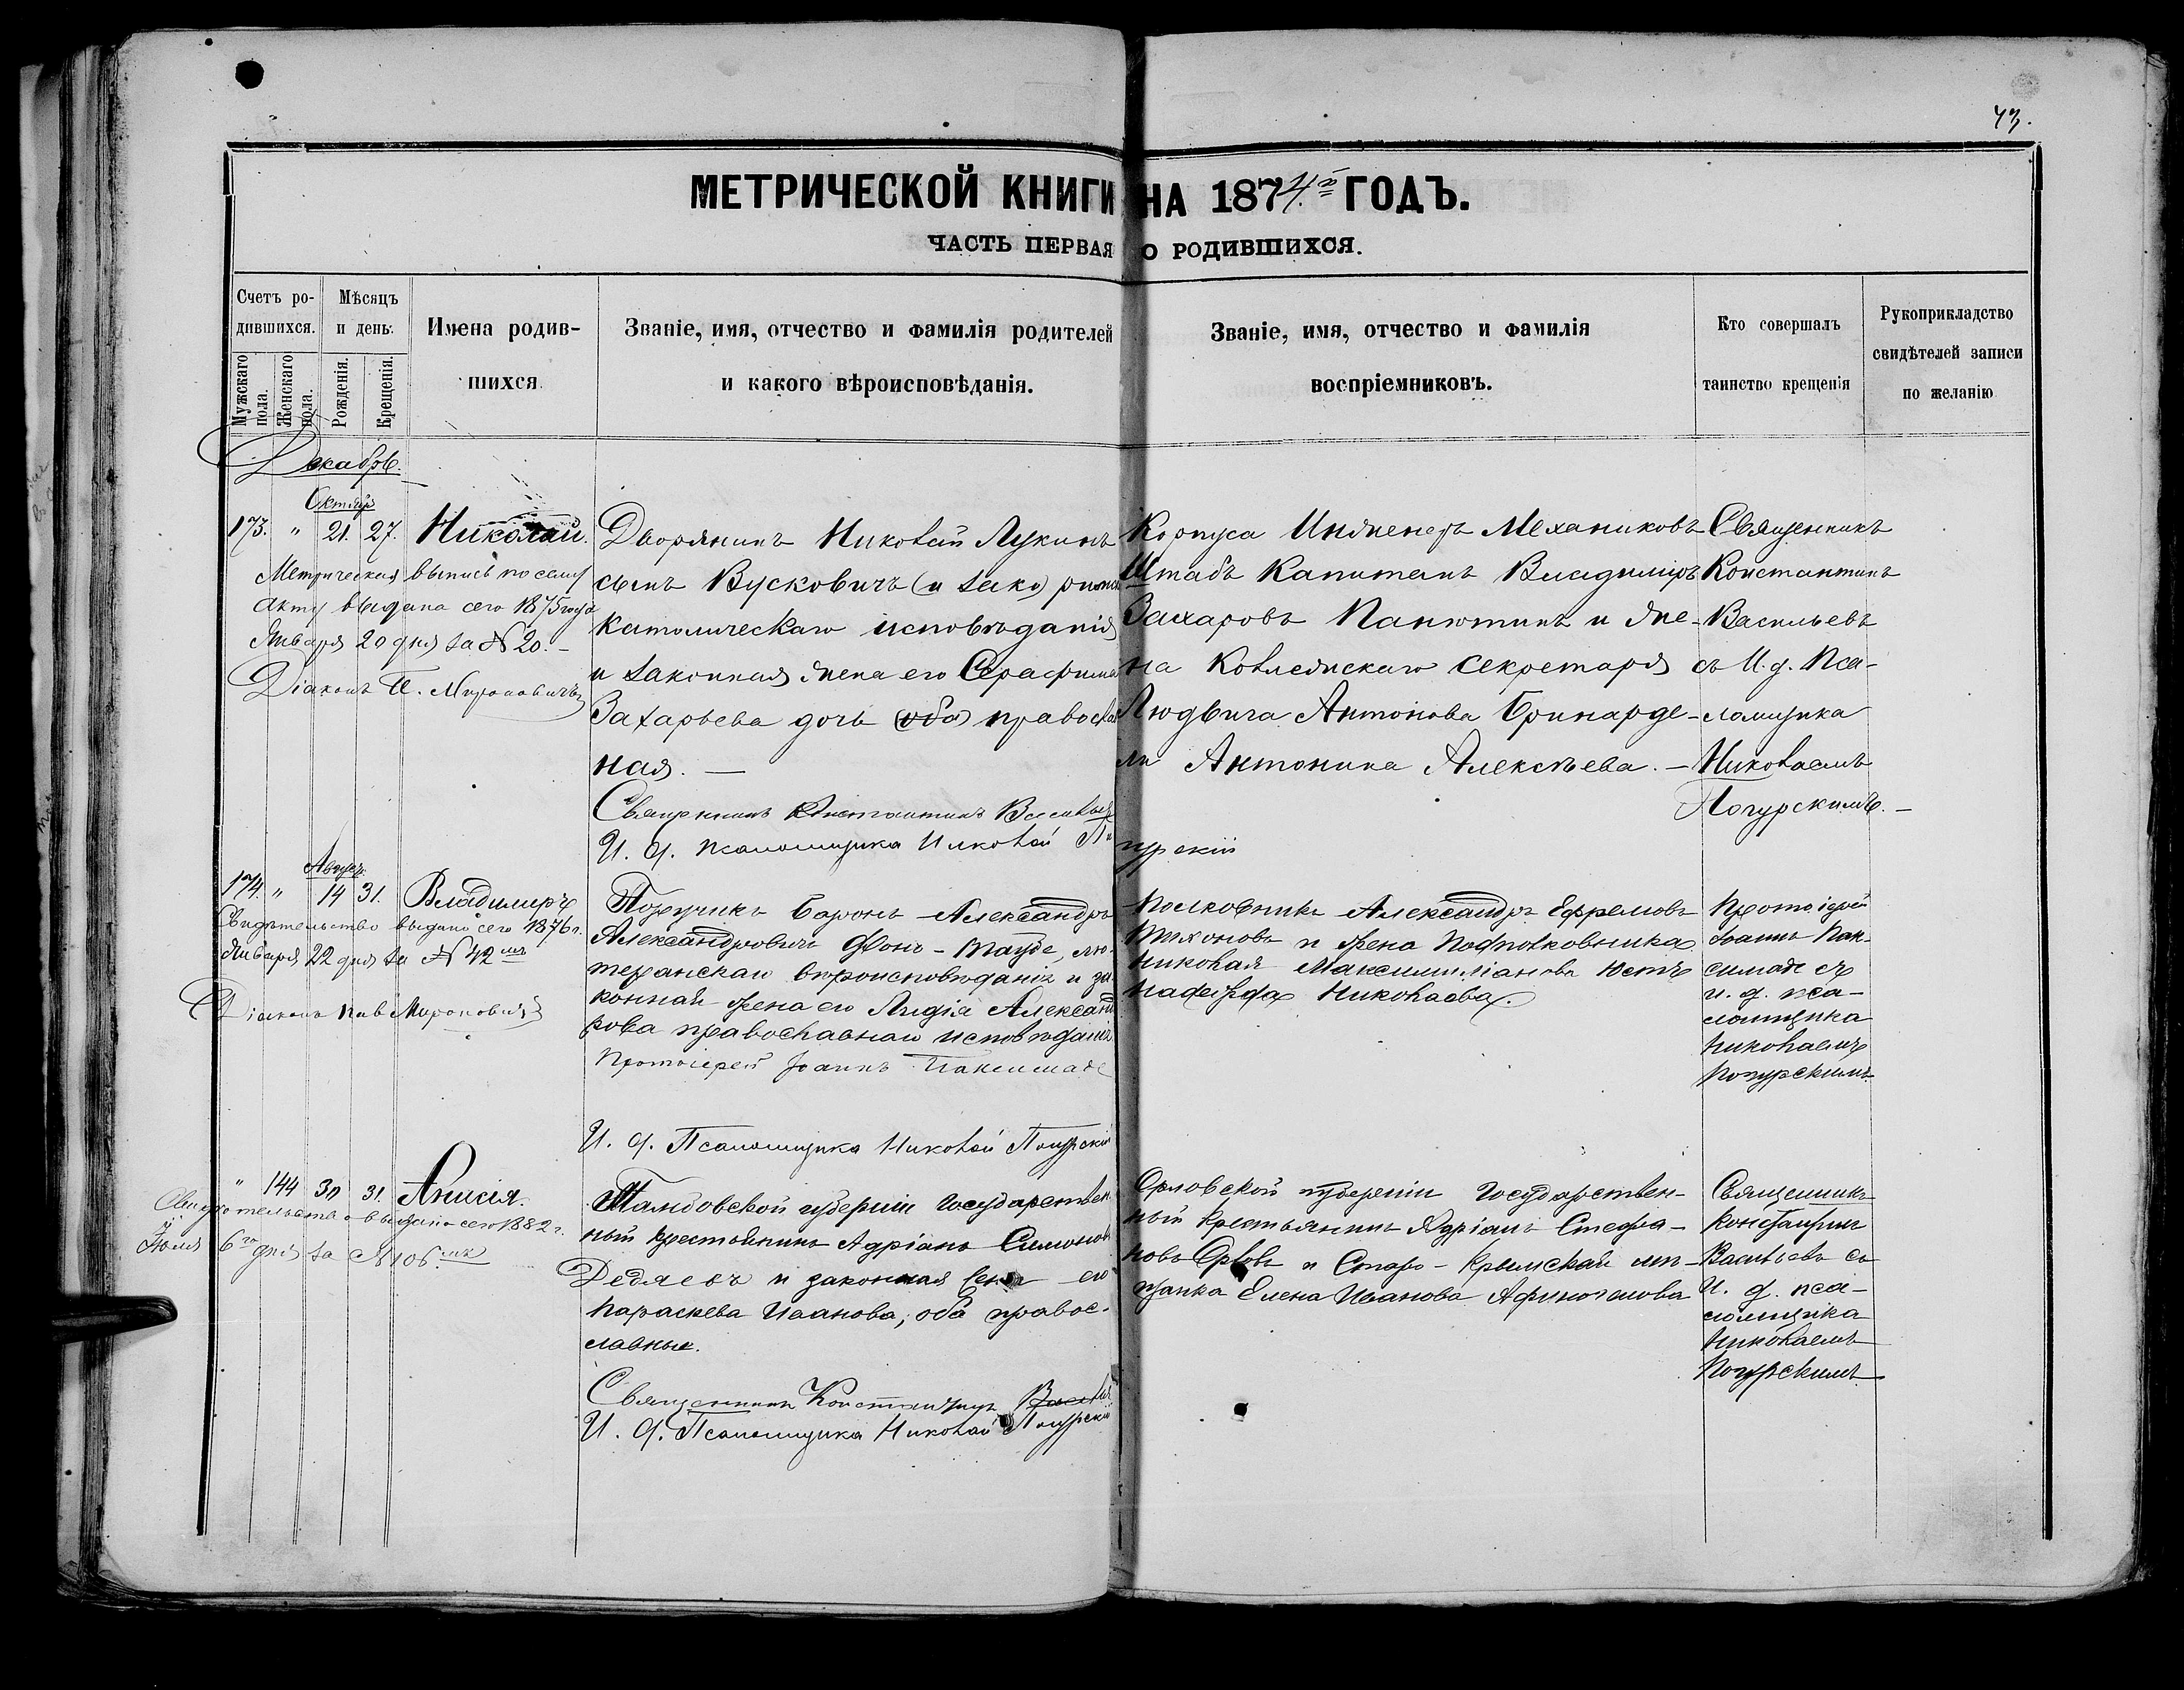 43.
МЕТРИЧЕСКОЙ КНИГИ НА 1874й ГОДЪ.
ЧАСТЬ ПЕРВАЯ О РОДИВШИХСЯ.
Счетъ родившихся.
Мужскаго пола.
Женскаго пола.
Мѣсяцъ и день.
Рожденія.
Крещенія.
Имена родившихся.
Званіе, имя, отчество и фамилія родителей
и какого вѣроисповѣданія.
Званіе, имя, отчество и фамилія
воспріемниковъ.
Кто совершалъ
таинство крещенія
Рукоприкладство
свидѣтелей записи
по желанію
Декабрь.
Октября
173. " 21. 27. Николай.
Метрическая выпись по сему
акту выдана сего 1875 года
Января 20 дня за № 20. –
Діаконъ П. Мироновичъ
Дворянинъ Николай Лукинъ
сынъ Вусковичъ (и tako) римско
католическаго исповѣданія
и законная жена его Серафима
Захарьева дочь (оба) православ
ная. —
Священникъ Константинъ Васильевъ
И. д. псаломщика Николай Погурскій
Корпуса Инженеръ Механиковъ
Штабъ Капитанъ Владиміръ
Захаровъ Панютинъ и же-
на Коллежскаго Секретаря
Людвига Антонова Бринарде-
ли Антонина Алексѣева. –
Священникъ
Константинъ
Васильевъ
съ И. д. Пса-
ломщика
Николаемъ
Погурскимъ. –
Августъ
174. " 14 31. Владимиръ
Свидѣтельство выдано сего 1876 г.
Января 22 дня за № 42мъ
Діаконъ Пав Мироновичъ
Поручикъ Баронъ Александръ
Александровичъ Фонъ-Таубе, лю-
теранскаго вѣроисповѣданія и за-
конная жена его Лидія Александ
рова православнаго исповѣданія
Протоіерей Іоаннъ Паксимаде
И. д. Псаломщика Николай Погурскій
Полковникъ Александръ Ефремовъ
Тихоновъ и жена Подполковника
Николая Максимиліанова Юстъ
Надежда Николаева.
Протоіерей
Іоаннъ Пак-
симаде съ
и. д. пса-
ломщика
Николаемъ
Погурскимъ.
" 144 30 31. Анисія.
Свидѣтельство выдано сего 1882 г.
Іюля 6го дня за № 106.мъ
Тамбовской губерніи Государствен
ный крестьянинъ Адріанъ Симоновъ
Дедяевъ и законная жена его
Параскева Иванова, оба правос-
лавные.
Священникъ Константинъ Васильевъ
И. д. Псаломщика Николай Погурскій
Орловской губерніи Государствен-
ный крестьянинъ Адріанъ Стефа-
новъ Орловъ и Старо-Крымская мѣ-
щанка Елена Иванова Афиногенова
Священникъ
Константинъ
Васильевъ съ
И. д. пса-
ломщика
Николаемъ
Погурскимъ.